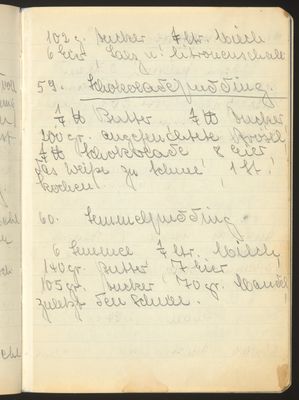 102 g. Zucker ltr. Milch
6 Eier, Salz u. Citronenschale
59. Schokoladepudding.
Butter Zucker
200 gr. angefeuchtete Brösel
Schokolade 8 Eier
das Weiße zu Schnee, 1 St.
kochen!
60. Semmelpudding.
6 Semmel ltr. Milch,
140 gr. Butter 7 Eier
105 gr. Zucker 70 gr. Mandel,
zuletzt den Schnee.